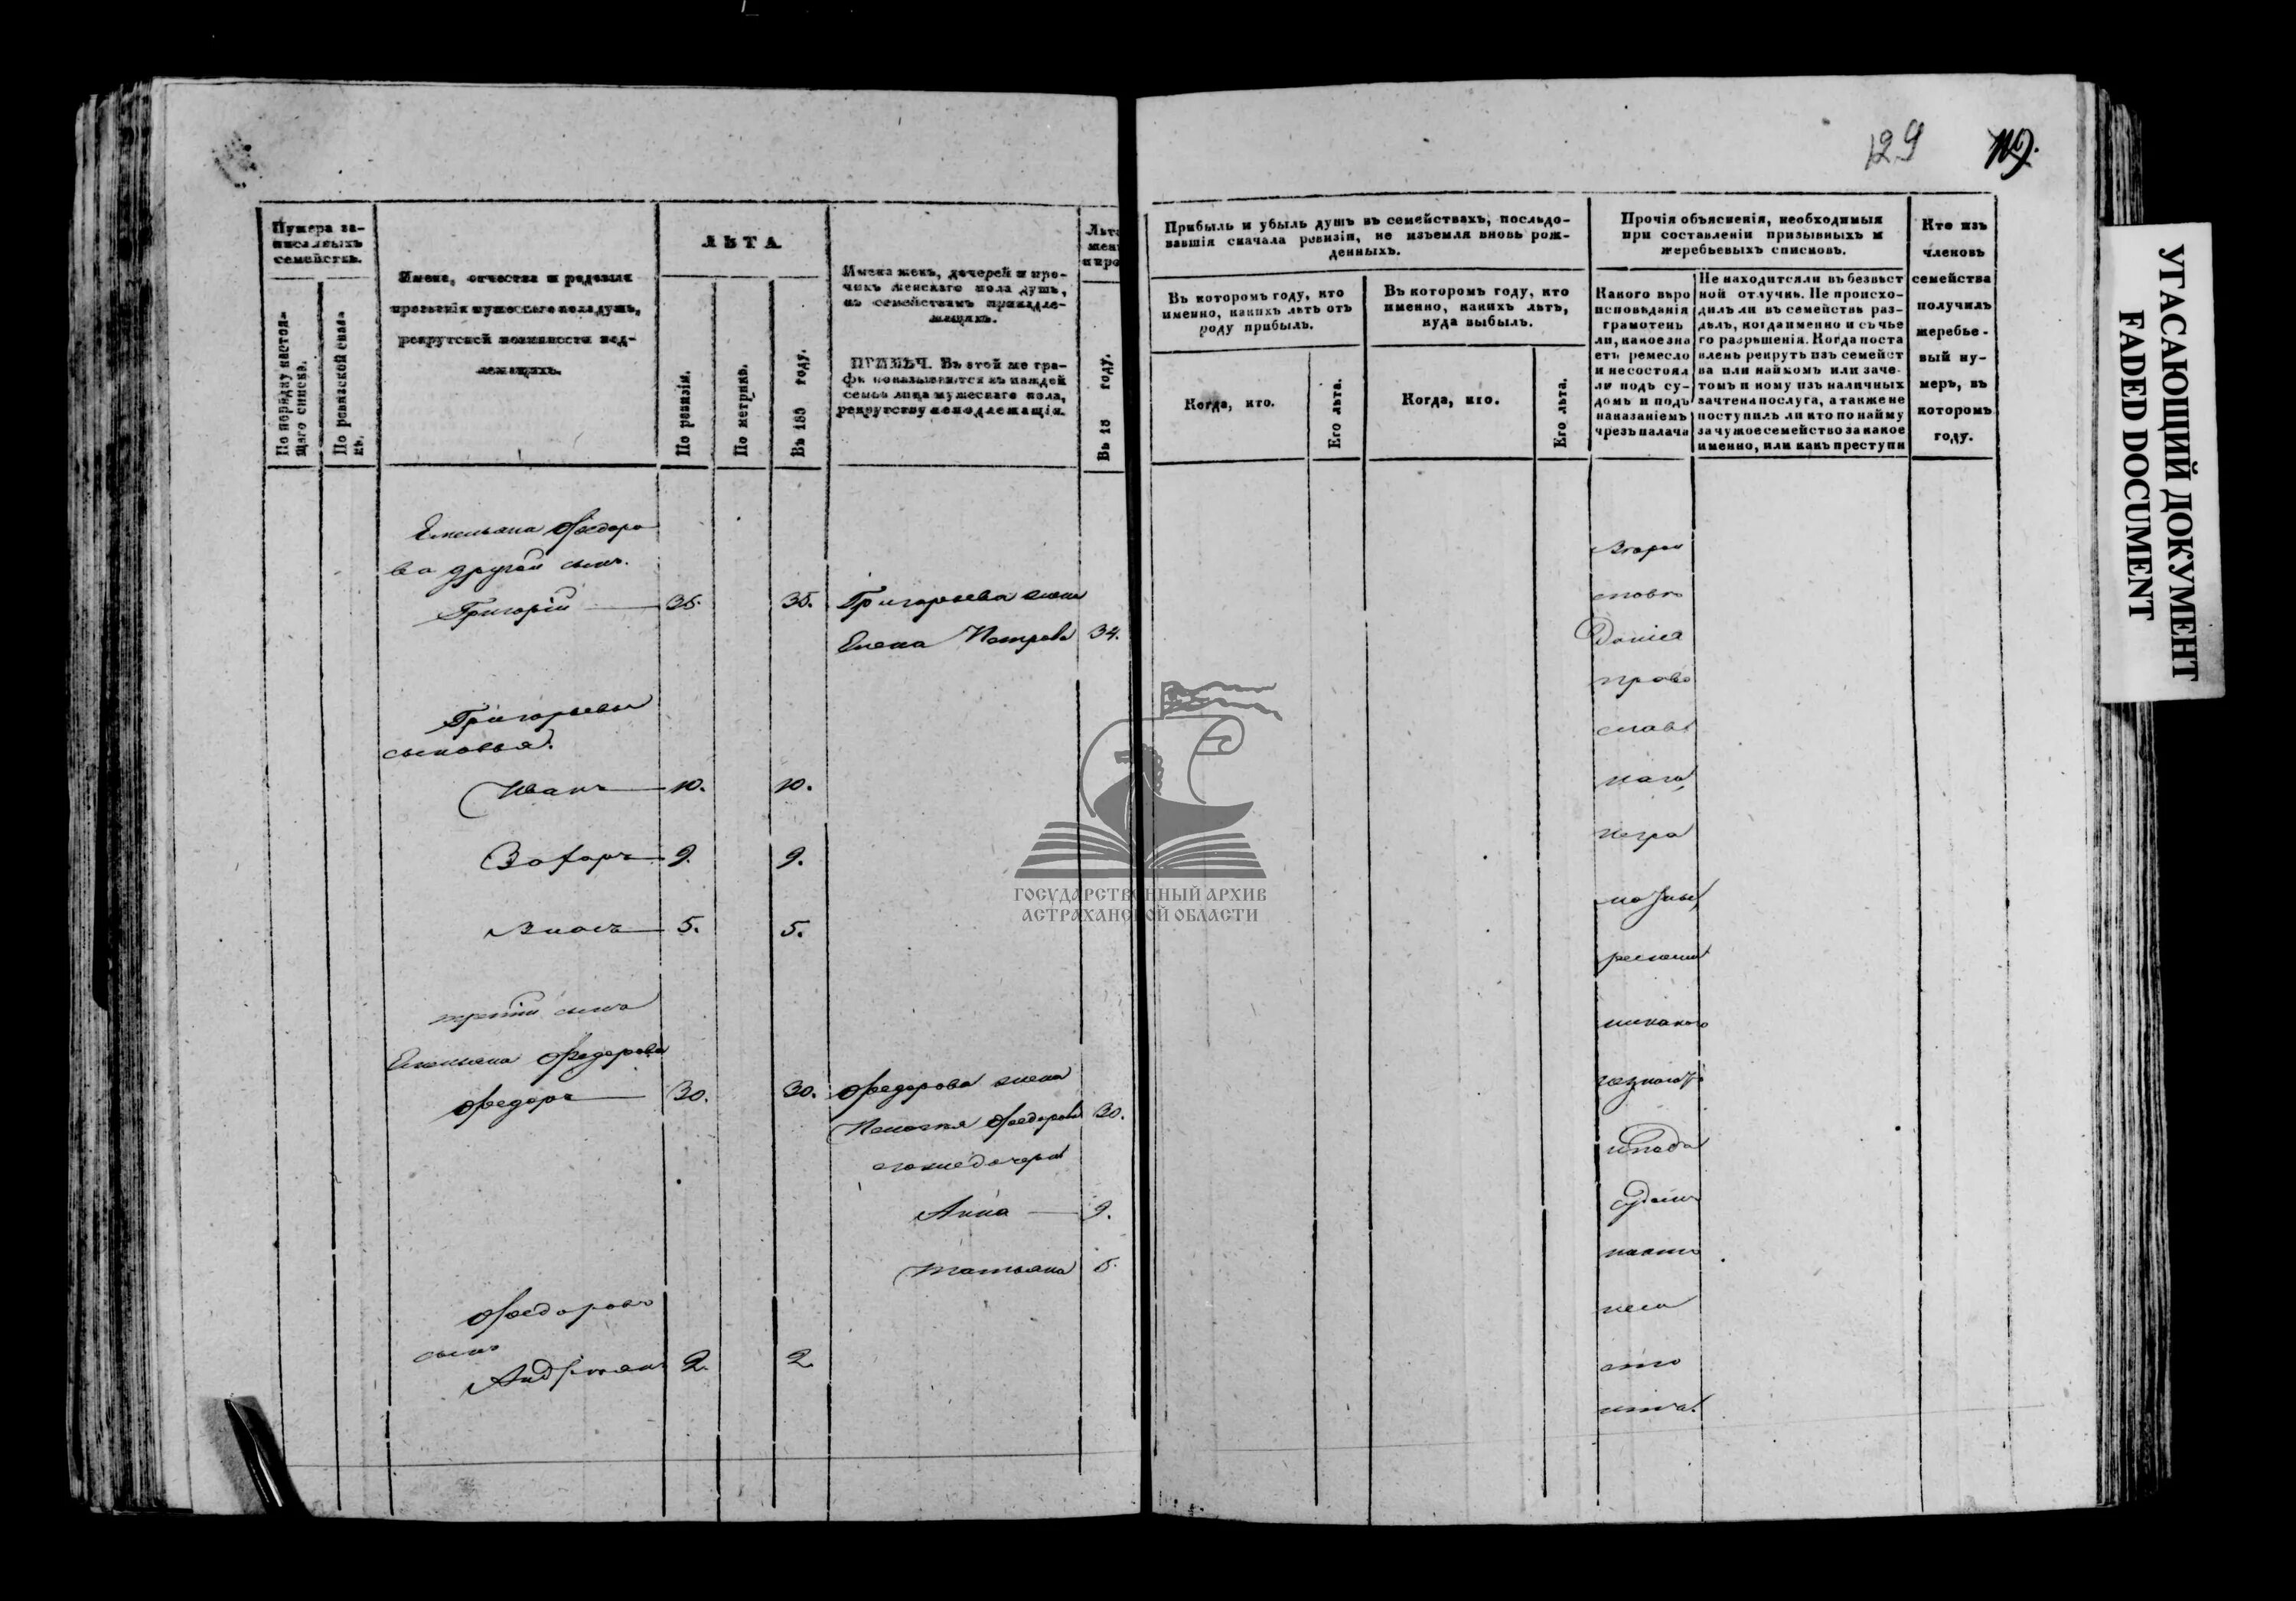 129
Нумера за-
писанныхъ
семействъ.
По порядку настоя-
щаго списка.
По ревизской сказ-
кѣ.
Имена, отчества и родовыя
прозванія мужескаго пола душъ,
рекрутской повинности под-
лежащихъ.
ЛѢТА
По ревизіи.
По метрикѣ.
Въ 185 году.
Имена женъ, дочерей и про-
чихъ женскаго пола душъ,
къ семействамъ принадле-
жащихъ.
ПРИМѢЧ. Въ этой же гра-
фѣ показываются въ каждой
семьѣ лица мужескаго пола,
рекрутству неподлежащія.
Лѣта
жен
Въ 18 году.
Прибыль и убыль душъ въ семействахъ, послѣдо-
вавшія сначала ревизіи, не изъемля вновь рож-
денныхъ.
Въ которомъ году, кто
именно, какихъ лѣтъ отъ
роду прибылъ.
Когда, кто.
Его лѣта.
Въ которомъ году, кто
именно, какихъ лѣтъ,
куда выбылъ.
Когда, кто.
Его лѣта.
Прочія объясненія, необходимыя
при составленіи призывныхъ и
жеребьевыхъ списковъ.
Какого вѣро
исповѣданія
грамотенъ
ли, какое зна
етъ ремесло
и несостоял
ли подъ су-
домъ и подъ
наказаніемъ
чрезъ палача
Не находится ли въ безвѣст
ной отлучкѣ. Не происхо-
дилъ ли въ семействѣ раз-
дѣлъ, когда именно и съ чье
го разрѣшенія. Когда поста
вленъ рекрутъ изъ семейст
ва или наймомъ или заче-
томъ и кому изъ наличныхъ
зачтена послуга, а также не
поступилъ ли кто по найму
за чужое семейство за какое
именно, или какъ преступн
Кто изъ
членовъ
семейства
получилъ
жеребье-
вый ну-
меръ, въ
которомъ
году.
Емельяна Федоро
ва другой сынъ.
Григорій 35. 35. Григорьева жена
Елена Петрова 34.
Григорьевы
сыновья.
Иванъ 10. 10.
Захаръ 9. 9.
5. 5.
третій сынъ
Емельяна Федорова
Федоръ 30. 30. Федорова жена
Федорова 30.
его же дочери
Анна 9.
Татьяна 5.
Федоровъ
сынъ
Андріянъ 2. 2.
Вѣроис
повѣ
данія
право
слав
наго
негра
мотны
ремесла
никакого
незнаютъ
и подъ
судомъ
ника
УГАСАЮЩИЙ ДОКУМЕНТ
FADED DOCUMENT
ГОСУДАРСТВЕННЫЙ АРХИВ
АСТРАХАНСКОЙ ОБЛАСТИ